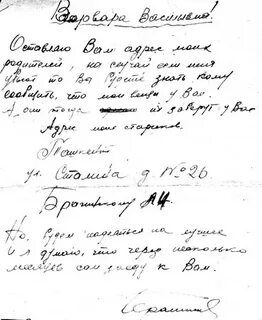 Варвара Васильевна!
Оставляю Вам адрес моих
родителей, на случай если меня
убьют то Вы будете знать кому
сообщить, что мои вещи у Вас.
А они тогда их заберут у Вас
Адрес моих стариков.
Ташкент
ул. Сталина д. №26.
Брагинскому АИ.
Но, будем надеяться на лучшее
и я думаю, что через несколько
месяцев сам заеду к Вам.